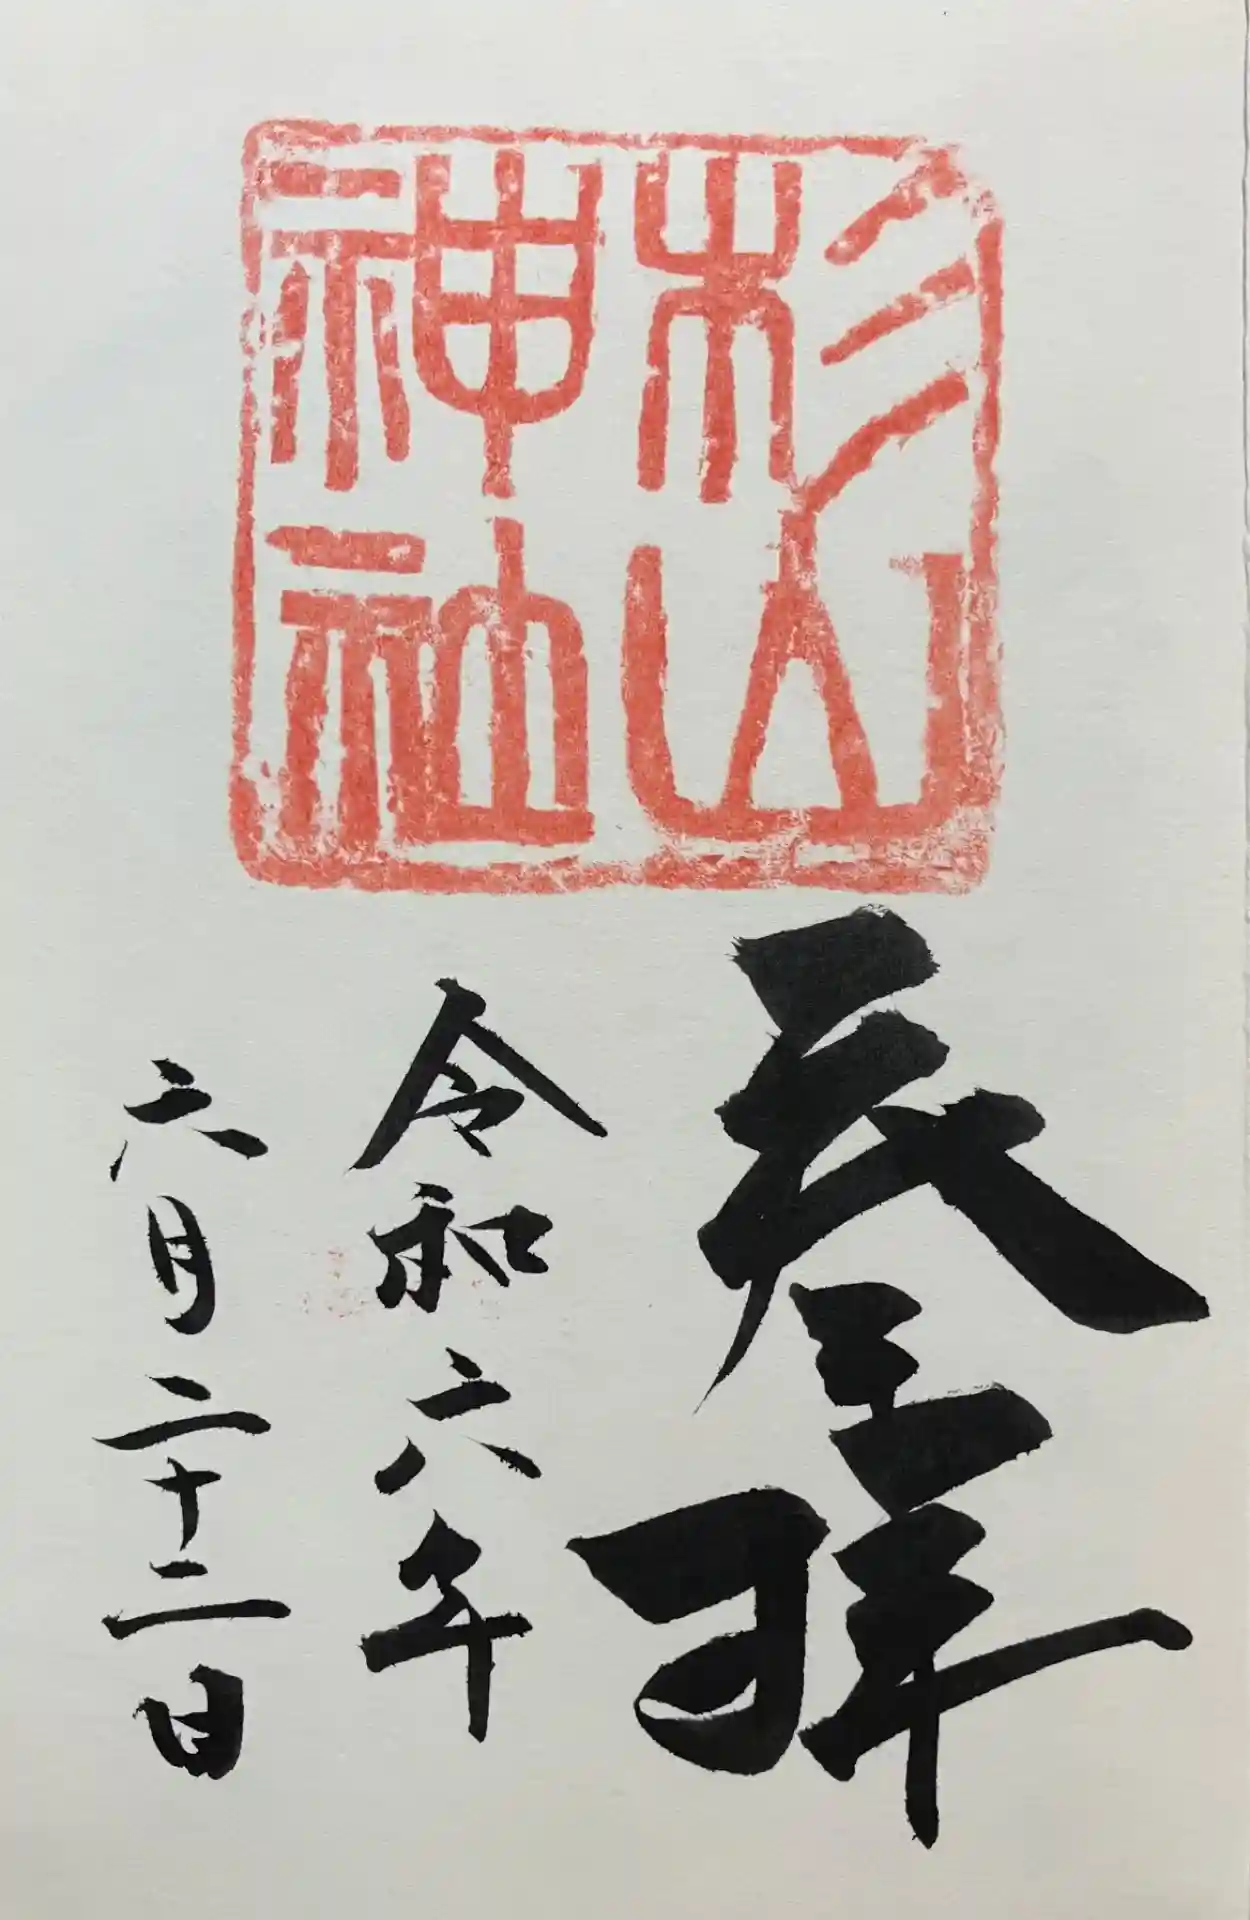 杉山
神社
奉拝
令和六年
六月二十二日